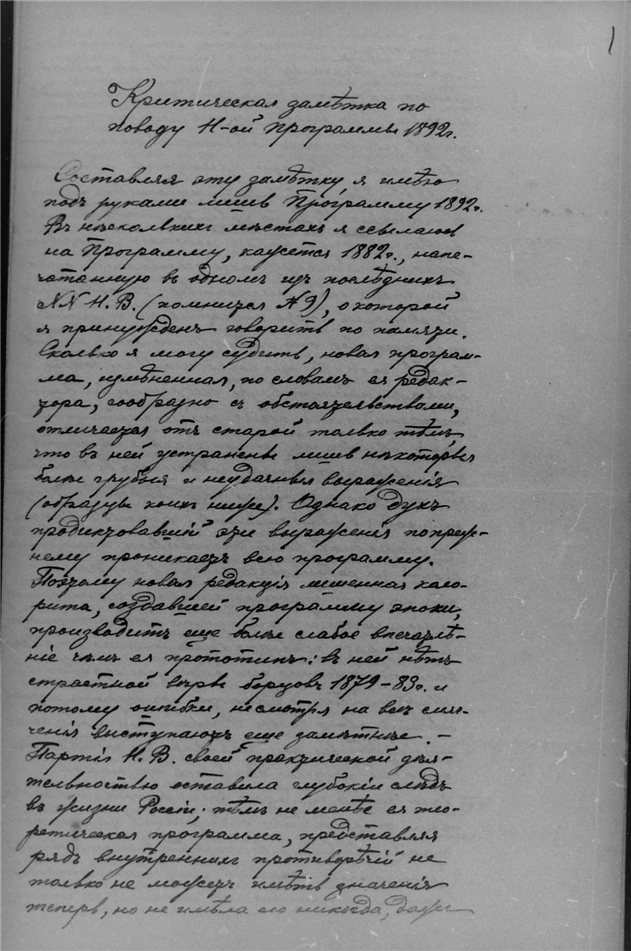 1
Критическая замѣтка по
поводу Н-ой программы 1892г.
Составляя эту замѣтку, я имѣю
подъ руками лишь Программу 1892г.
Въ нѣсколькихъ мѣстахъ я ссылаюсь
на Программу, кажется 1882г., напе-
чатанную въ одномъ изъ послѣднихъ
№№ Н. В. (помнится № 9), о которой
я принужденъ говорить по памяти.
Сколько я могу судить, новая програм-
ма, измѣненная, по словамъ ея редак-
тора, сообразно съ обстоятельствами,
отличается отъ старой только тѣмъ,
что въ ней устранены лишь нѣкоторыя
болѣе грубыя и неудачныя выраженія
(образцы коихъ ниже). Однако духъ
продиктовавшій эти выраженія попреж-
нему проникаетъ всю программу.
Поэтому новая редакція лишенная коло-
рита, создавшей программу эпохи,
производитъ еще болѣе слабое впечатлѣ-
ніе чѣмъ ея прототипъ: въ ней нѣтъ
страстной вѣры борцовъ 1879-83г. и
потому ошибки, несмотря на всѣ смяг-
ченія выступаютъ еще замѣтнѣе. -
Партія Н. В. своей практической дѣя-
тельностью оставила глубокій слѣдъ
въ жизни Россіи; тѣмъ не менѣе ея тео-
ретическая программа, представляя
рядъ внутреннихъ противорѣчій не
только не можетъ имѣть значенія
теперь, но не имѣла его никогда, даже